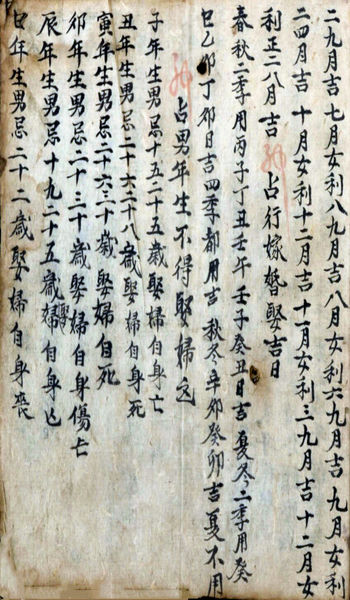 二九月吉 七月女利八九月吉 八月女利六九月吉 九月女利
二四月吉 十月女利十二月吉 十一月女利三九月吉 十二月女
利正二八月吉 占行嫁婚娶吉日
春秋二季用丙子丁丑壬午 壬子癸丑日吉 夏冬二季用癸
巳乙卯丁卯日吉 四季都用吉 秋冬辛卯癸卯吉夏不用
占男年生不得娶婦
子年生男忌十五二十五歲娶婦自身亡
丑年生男忌二十六二十八歲娶婦自身死
寅年生男忌二十六三十歲娶婦自死
卯年生男忌二十三十歲娶婦自身傷亡
辰年生男忌十九二十五歲娶婦自身亡
巳年生男忌二十二歲娶婦自身喪